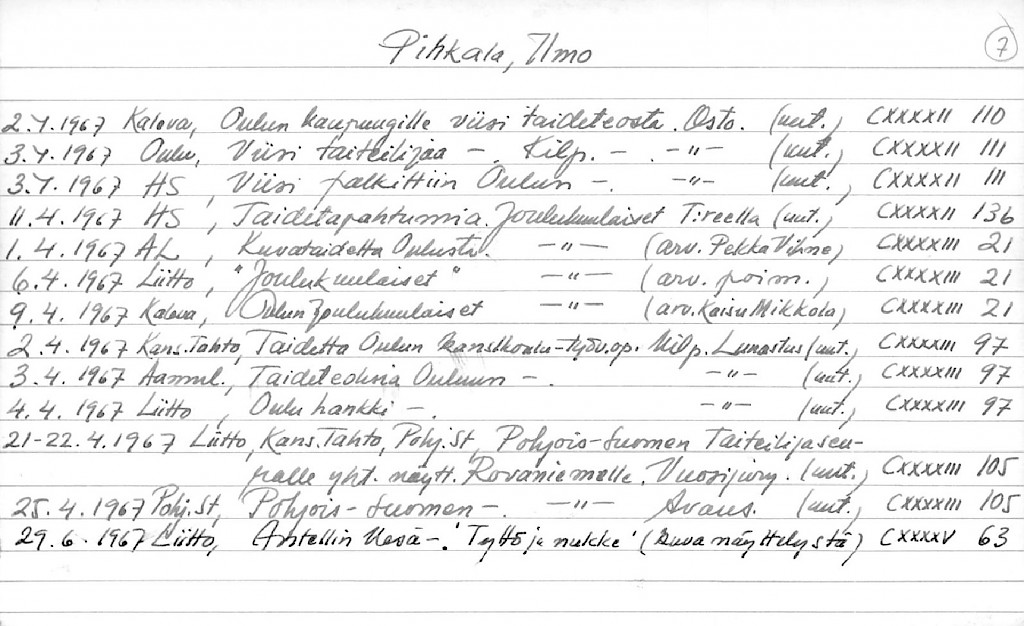 Pihkala, Ilmo
7
2.4.1967 Kaleva, Oulun kaupungille viisi taideteosta. Osto. (uut.) CXXXXII 110
3.4.1967 Oulu, Viisi taiteilijaa –. Kilp. –. –"– (uut.) CXXXXII 111
3.4.1967 HS, Viisi palkittiin Oulun –. –"– (uut.) CXXXXII 111
11.4.1967 HS, Taidetapahtumia. Joulukuulaiset Tireella (uut.) CXXXXII 136
1.4.1967 AL, Kuvataidetta Oulusta. –"– (arv. Pekka Vihne) CXXXXIII 21
6.4.1967 Liitto, "Joulukuulaiset" –"– (arv. poim.) CXXXXIII 21
9.4.1967 Kaleva, Oulun Joulukuulaiset –"– (arv. Kaisu Mikkola) CXXXXIII 21
2.4.1967 Kans.Tahto, Taidetta Oulun kansl.koulu-työv.op. kilp. Lunastus (uut.) CXXXXIII 97
3.4.1967 Aamul., Taideteoksia Ouluun –. –"– (uut.) CXXXXIII 97
4.4.1967 Liitto, Oulu hankki –. –"– (uut.) CXXXXIII 97
21-22.4.1967 Liitto, Kans.Tahto, Pohj.St, Pohjois-Suomen Taiteilijaseu-
ralle yht. näytt. Rovaniemelle. Vuosijury. (uut.) CXXXXIII 105
25.4.1967 Pohj.St, Pohjois-Suomen –. –"– Avaus. (uut.) CXXXXIII 105
29.6.1967 Liitto, Antellin kesä –. 'Tyttö ja nukke' (kuva näyttelystä) CXXXXV 63